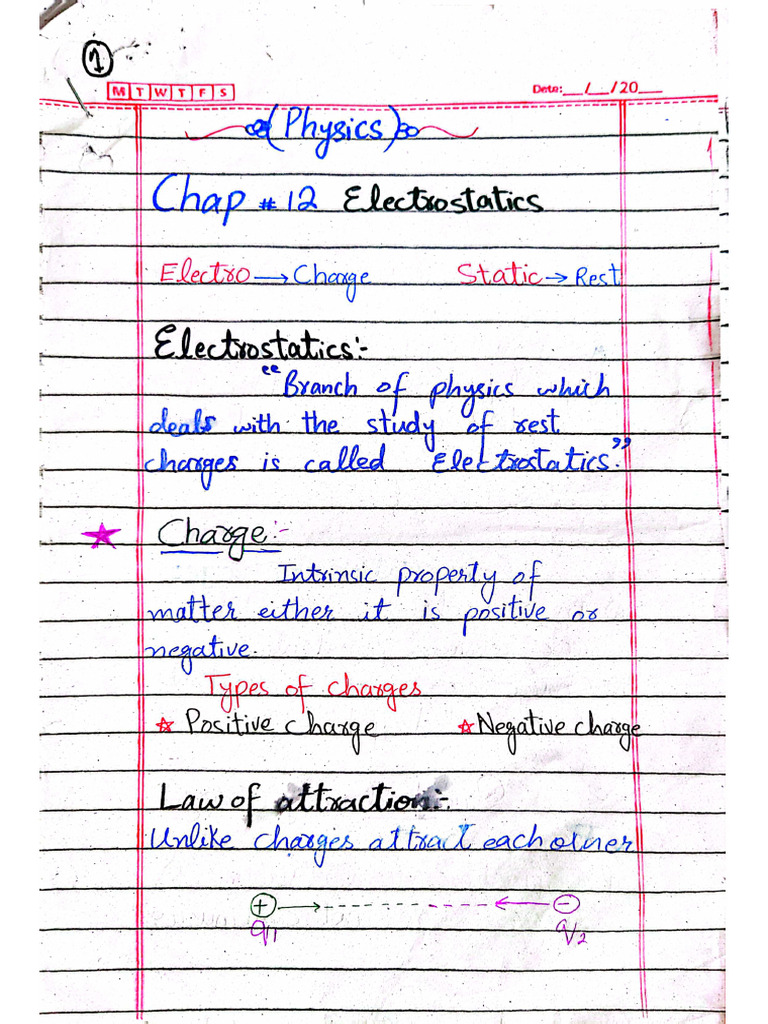 1
M T W T F S
Date:__/__/20__
(Physics)
Chap # 12 Electrostatics
Electro → Charge Static → Rest
Electrostatics:-
"Branch of physics which
deals with the study of rest
charges is called Electrostatics."
Charge:-
Intrinsic property of
matter either it is positive or
negative.
Types of charges
☆ Positive charge ☆ Negative charge
Law of attraction:-
Unlike charges attract each other
+ → ← -
q1 q2